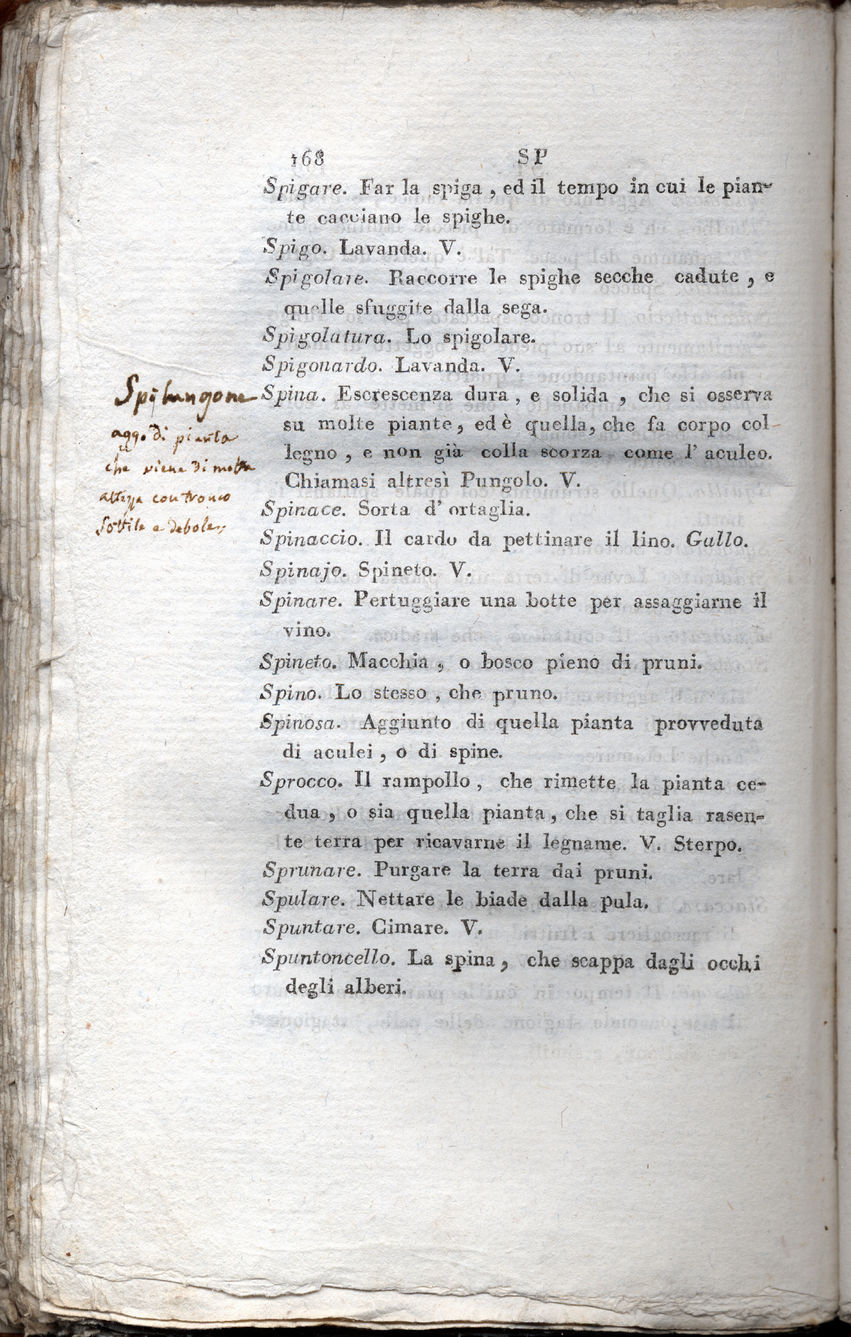 168 SP
Spigare. Far la spiga, ed il tempo in cui le pian-
te cacciano le spighe.
Spigo. Lavanda. V.
Spigolare. Raccorre le spighe secche cadute, e
quelle sfuggite dalla sega.
Spigolatura. Lo spigolare.
Spigonardo. Lavanda. V.
Spina. Escrescenza dura, e solida, che si osserva
su molte piante, ed è quella, che fa corpo col
legno, e non già colla scorza come l' aculeo.
Chiamasi altresì Pungolo. V.
Spinace. Sorta d' ortaglia.
Spinaccio. Il cardo da pettinare il lino. Gallo.
Spinajo. Spineto. V.
Spinare. Pertuggiare una botte per assaggiarne il
vino.
Spineto. Macchia, o bosco pieno di pruni.
Spino. Lo stesso, che pruno.
Spinosa. Aggiunto di quella pianta provveduta
di aculei, o di spine.
Sprocco. Il rampollo, che rimette la pianta ce-
dua, o sia quella pianta, che si taglia rasen-
te terra per ricavarne il legname. V. Sterpo.
Sprunare. Purgare la terra dai pruni.
Spulare. Nettare le biade dalla pula.
Spuntare. Cimare. V.
Spuntoncello. La spina, che scappa dagli occhi
degli alberi.
Spilungone
agg. di pianta
che viene di molta
altezza con tronco
sottile e debole